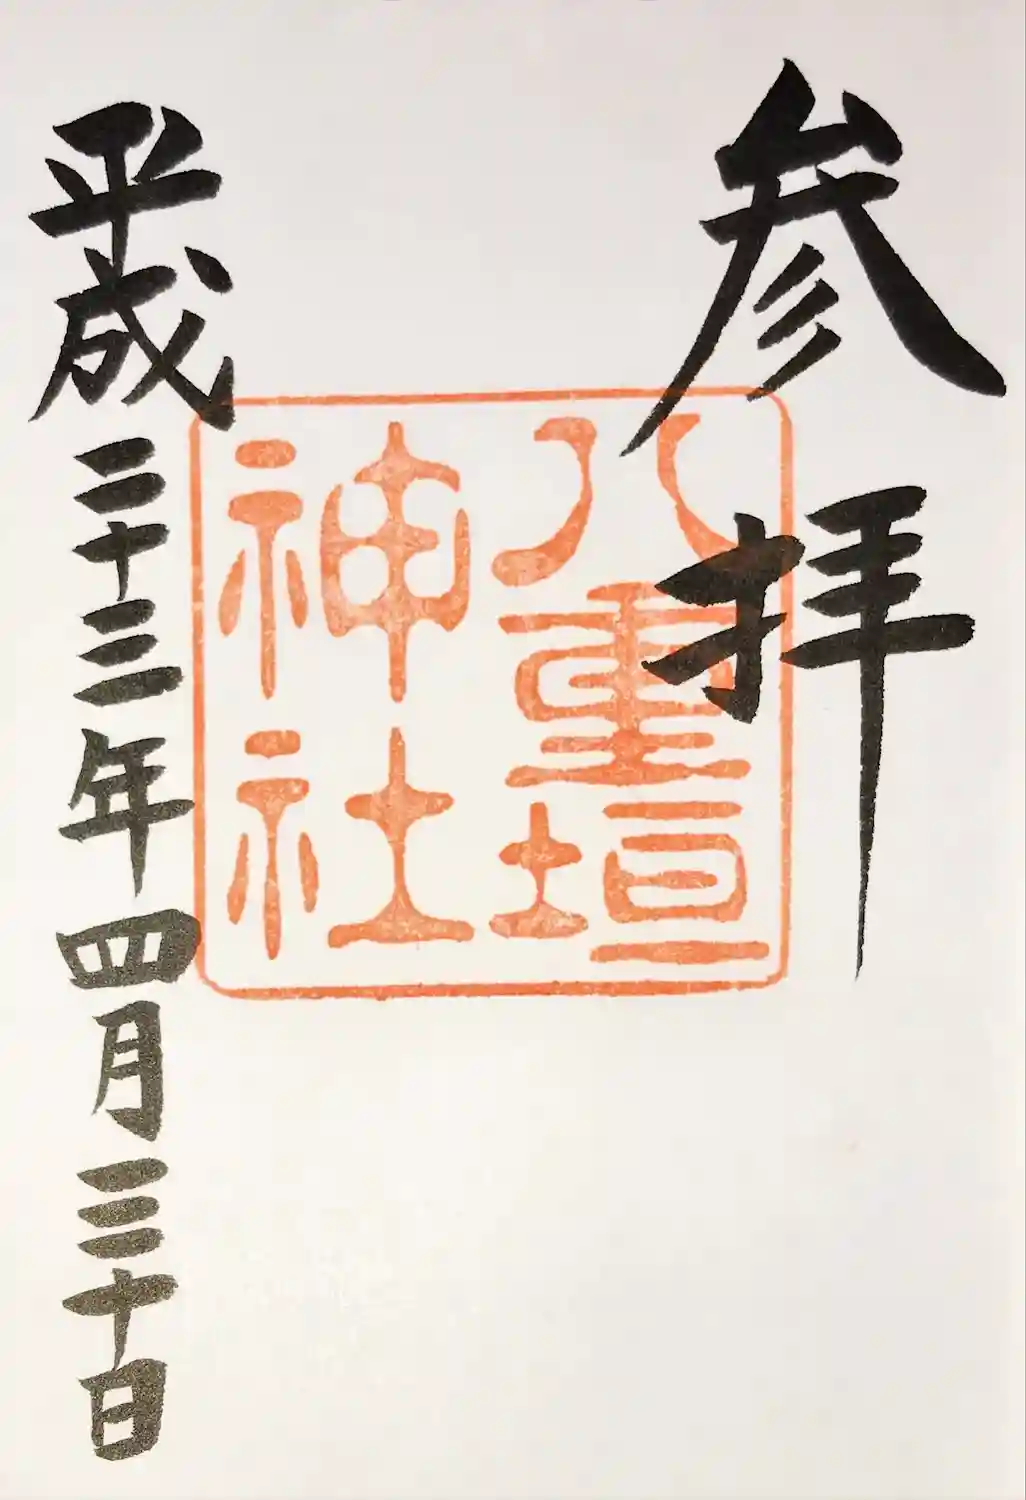 参拝
八重垣
神社
平成二十三年四月三十日